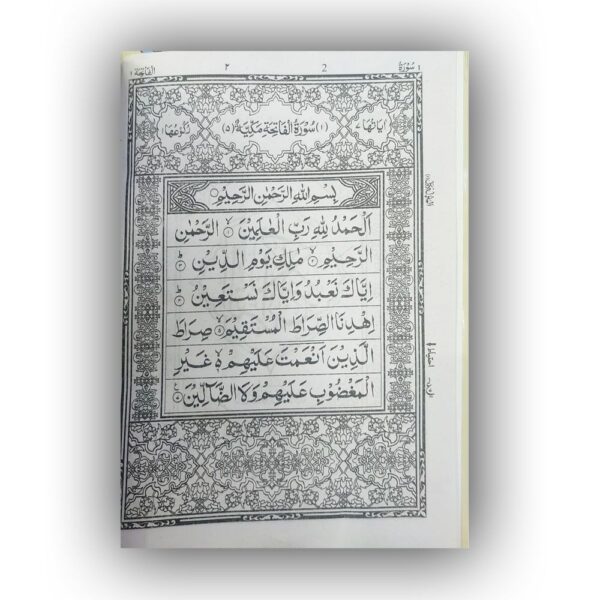 سُوْرَةُ ١
2
٢
الفَاتِحَة ١
اٰيَاتُهَا ٧
(١) سُوْرَةُ الْفَاتِحَةِ مَكِّيَّةٌ (٥)
رُكُوْعُهَا ١
بِسْمِ اللهِ الرَّحْمٰنِ الرَّحِيْمِ
اَلْحَمْدُ لِلّٰهِ رَبِّ الْعٰلَمِيْنَ ١ الرَّحْمٰنِ
الرَّحِيْمِ ٢ مٰلِكِ يَوْمِ الدِّيْنِ ٣
اِيَّاكَ نَعْبُدُ وَاِيَّاكَ نَسْتَعِيْنُ ٤
اِهْدِنَا الصِّرَاطَ الْمُسْتَقِيْمَ ٥ صِرَاطَ
الَّذِيْنَ اَنْعَمْتَ عَلَيْهِمْ ٦ غَيْرِ
الْمَغْضُوْبِ عَلَيْهِمْ وَلَا الضَّآلِّيْنَ ٧